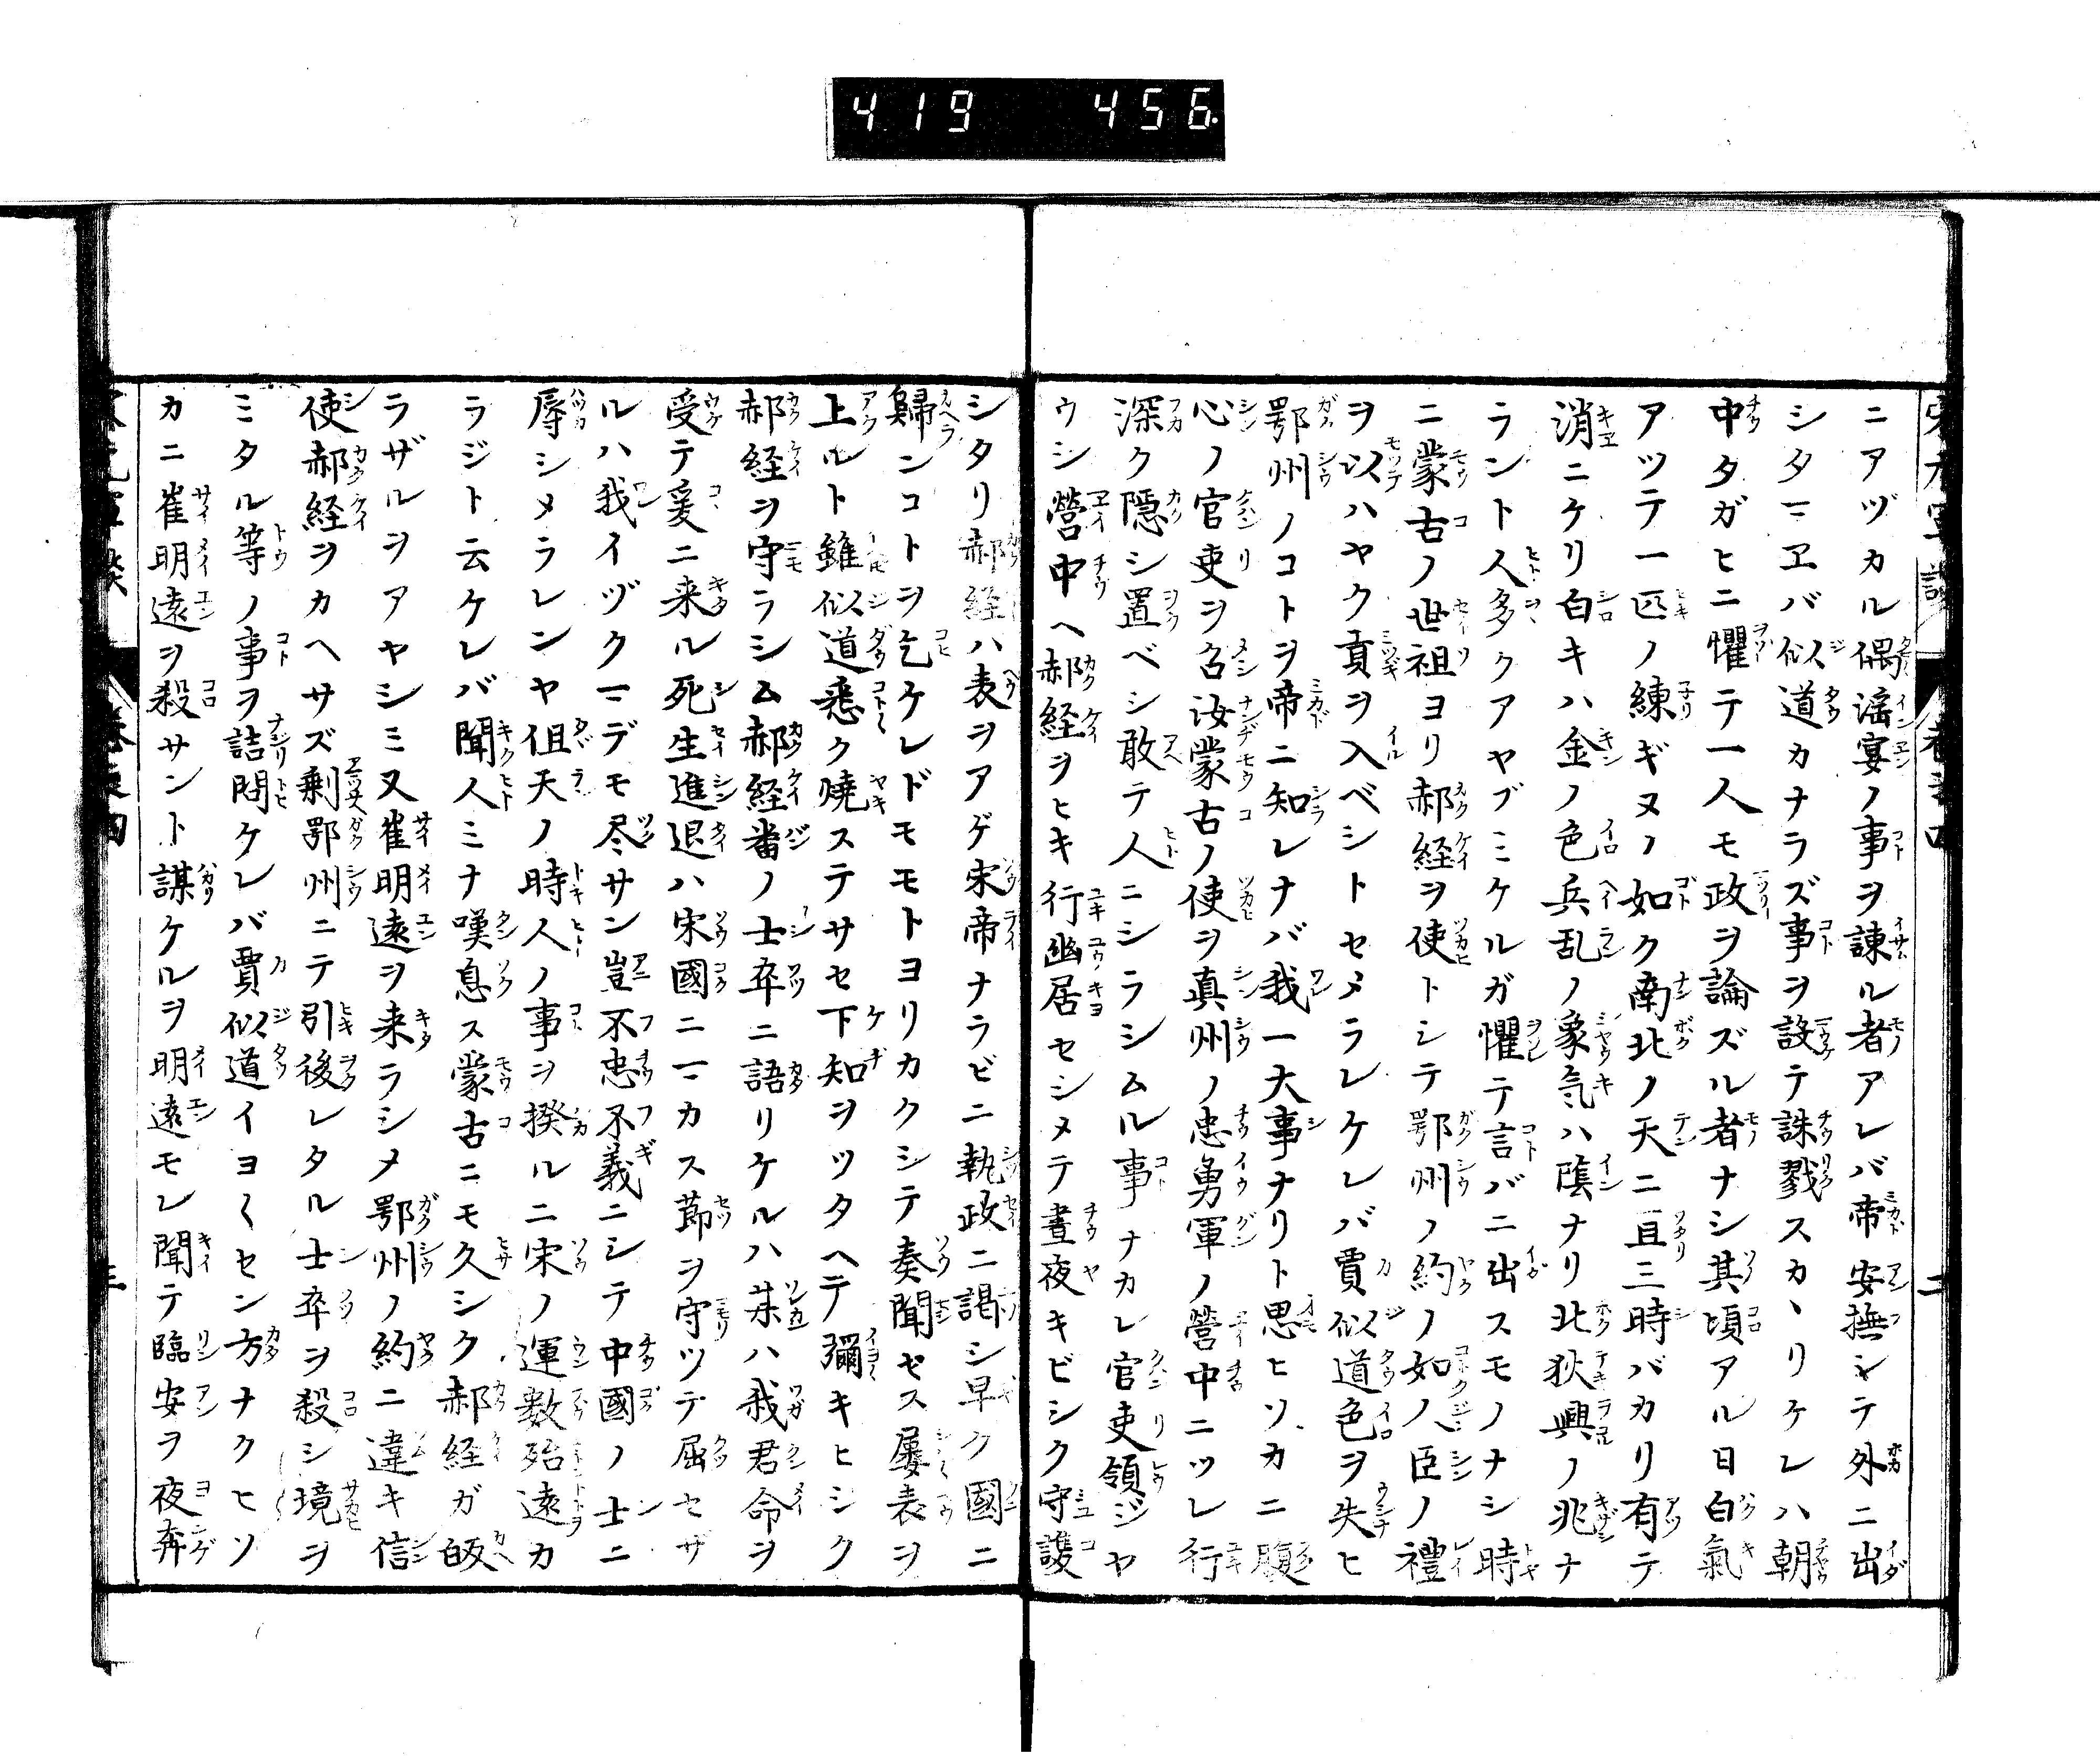 419 456
ニアヅカル偶滛宴ノ事ヲ諌ル者アレバ帝安撫シテ外ニ出
シタマヱバ似道カナラズ事ヲ設テ誅戮スカヽリケレハ朝
中タガヒニ懼テ一人モ政ヲ論ズル者ナシ其頃アル日白氣
アツテ一匹ノ練ギヌノ如ク南北ノ天ニ亘三時バカリ有テ
消ニケリ白キハ金ノ色兵乱ノ象気ハ陰ナリ北狄興ノ兆ナ
ラント人多クアヤブミケルガ懼テ言バニ出スモノナシ時
ニ蒙古ノ世祖ヨリ郝経ヲ使トシテ鄂州ノ約ノ如ノ臣ノ禮
ヲ以ハヤク貢ヲ入ベシトセメラレケレバ賈似道色ヲ失ヒ
鄂州ノコトヲ帝ニ知レナバ我一大事ナリト思ヒソカニ腹
心ノ官吏ヲ召汝蒙古ノ使ヲ真州ノ忠勇軍ノ營中ニツレ行
深ク隠シ置ベシ敢テ人ニシラシムル事ナカレ官吏領ジヤ
ウシ營中ヘ郝経ヲヒキ行幽居セシメテ晝夜キビシク守護
シタリ郝経ハ表ヲアゲ宋帝ナラビニ執政ニ謁シ早ク國ニ
歸ンコトヲ乞ケレドモモトヨリカクシテ奏聞セス屡表ヲ
上ルト雖似道悉ク燒ステサセ下知ヲツタヘテ彌キヒシク
郝経ヲ守ラシム郝経番ノ士卒ニ語リケルハ某ハ我君命ヲ
受テ爰ニ来ル死生進退ハ宋國ニマカス節ヲ守ツテ屈セザ
ルハ我イヅクマデモ尽サン豈不忠不義ニシテ中國ノ士ニ
辱シメラレンヤ但天ノ時人ノ事ヲ揆ルニ宋ノ運数殆遠カ
ラジト云ケレバ聞人ミナ嘆息ス蒙古ニモ久シク郝経ガ皈
ラザルヲアヤシミ又崔明遠ヲ来ラシメ鄂州ノ約ニ違キ信
使郝経ヲカヘサズ剰鄂州ニテ引後レタル士卒ヲ殺シ境ヲ
ミタル等ノ事ヲ詰問ケレバ賈似道イヨ〱セン方ナクヒソ
カニ崔明遠ヲ殺サント謀ケルヲ明遠モレ聞テ臨安ヲ夜奔